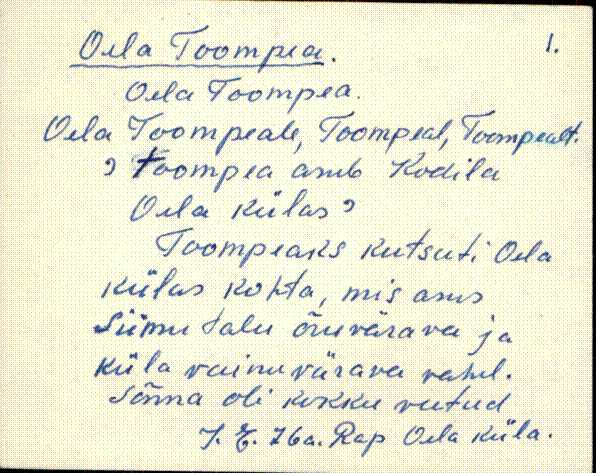 Oela Toompea. 1.
Oela Toompea.
Oela Toompeale, Toompeal, Toompealt.
? Toompea asub Kodila
Oela külas?
Toompeaks kutsuti Oela
külas kohta, mis asus
Siimu talu õuevärava ja
küla vainuvärava vahel.
Sõnna oli kokku veetud
J. E. 76a. Rap Oela küla.